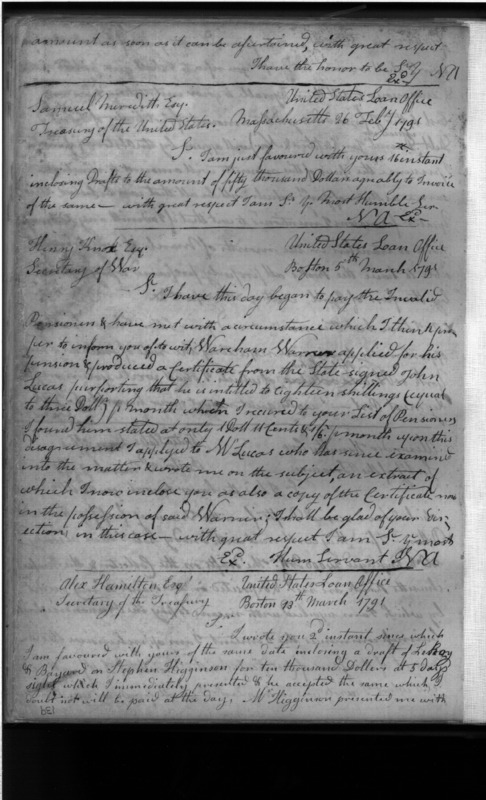 amount as soon as it can be ascertained, with great respect
I have the honor to be Sr. Y NA
Exd
Samuel Meredith Esq. United States Loan Office
Treasury of the United States. Massachusetts 26 Feby 1791
Sr. I am just favoured with yours 16 instant
inclosing Drafts to the amount of fifty thousand Dollars agreeably to Invoice
of the same — with great respect I am Sr. Yr. Most Humble Ser
NA Exd —
Henry Knox Esqr. United States Loan Office
Secretary of War Boston 5th March 1791
Sr. I have this day began to pay the Invalid
Pensioners & have met with a circumstance which I think pro-
per to inform you of to wit, Wareham Warner applied for his
pension & produced a Certificate from the State signed John
Lucas purporting that he is intitled to Eighteen shillings (equal
to three Dollrs) p month when I recured to your List of Pensioners
I found him stated at only 1 Doll 11 Cents & 1/6. p month upon this
disagreement I applyed to Mr Lucas who has since examined
into the matter & wrote me on the subject, an extract of
which I now inclose you as also a copy of the Certificate now
in the possession of said Warner; I shall be glad of your Dir-
ection in this case — with great respect I am Sr. Yr most
Exd. Hum Servant NA
Alex Hamilton Esqr United States Loan Office
Secretary of the Treasury Boston 13th March 1791
Sr.
I wrote you 2d instant since which
I am favoured with yours of the same date inclosing a draft of Leroy
& Bayard on Stephen Higginson for ten thousand Dollars at 5 days
sight which I immediately presented & he accepted the same which I
doubt not will be paid at the day, Mr Higginson presented me with
139